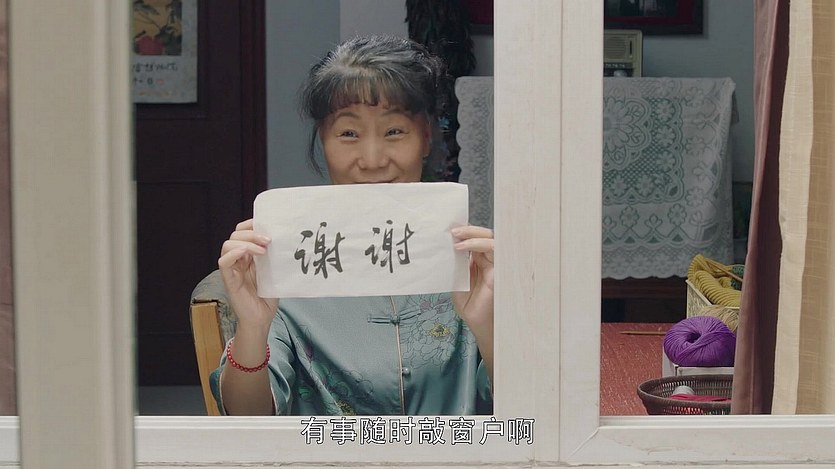 谢谢
有事随时敲窗户啊